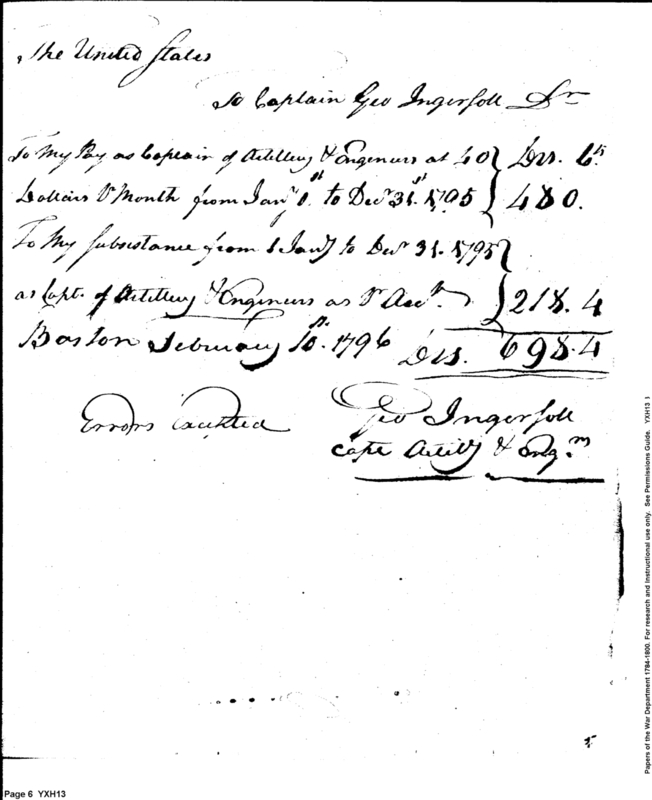 The United States
To Captain Geo Ingersoll Dr
To My Pay as Captain of Artillery & Engineers at 40 Drs. Cts.
Dollars Pr Month from Jany 1st. to Decr 31st. 1795 480.
To My Subsistance from 1 Jany to Decr 31. 1795
as Capt. of Artillery & Engineers as Pr Acct. 218.4
Boston February 10th. 1796 Drs. 698.4
Errors Excepted Geo Ingersoll
Capt Artily & Engrs
Papers of the War Department 1784-1800. For research and Instructional use only. See Permissions Guide. YXH13 1
Page 6 YXH13